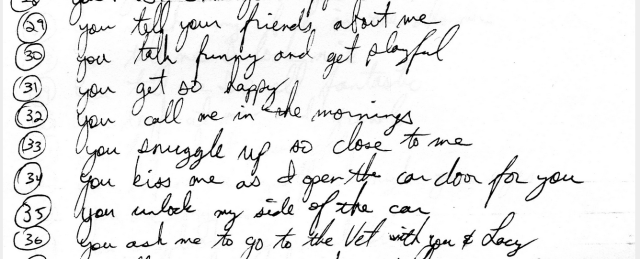 29 you tell your friends about me
30 you talk funny and get playful
31 you get so happy
32 you call me in the mornings
33 you snuggle up so close to me
34 you kiss me as I open the car door for you
35 you unlock my side of the car
36 you ask me to go to the Vet with you & Lacy